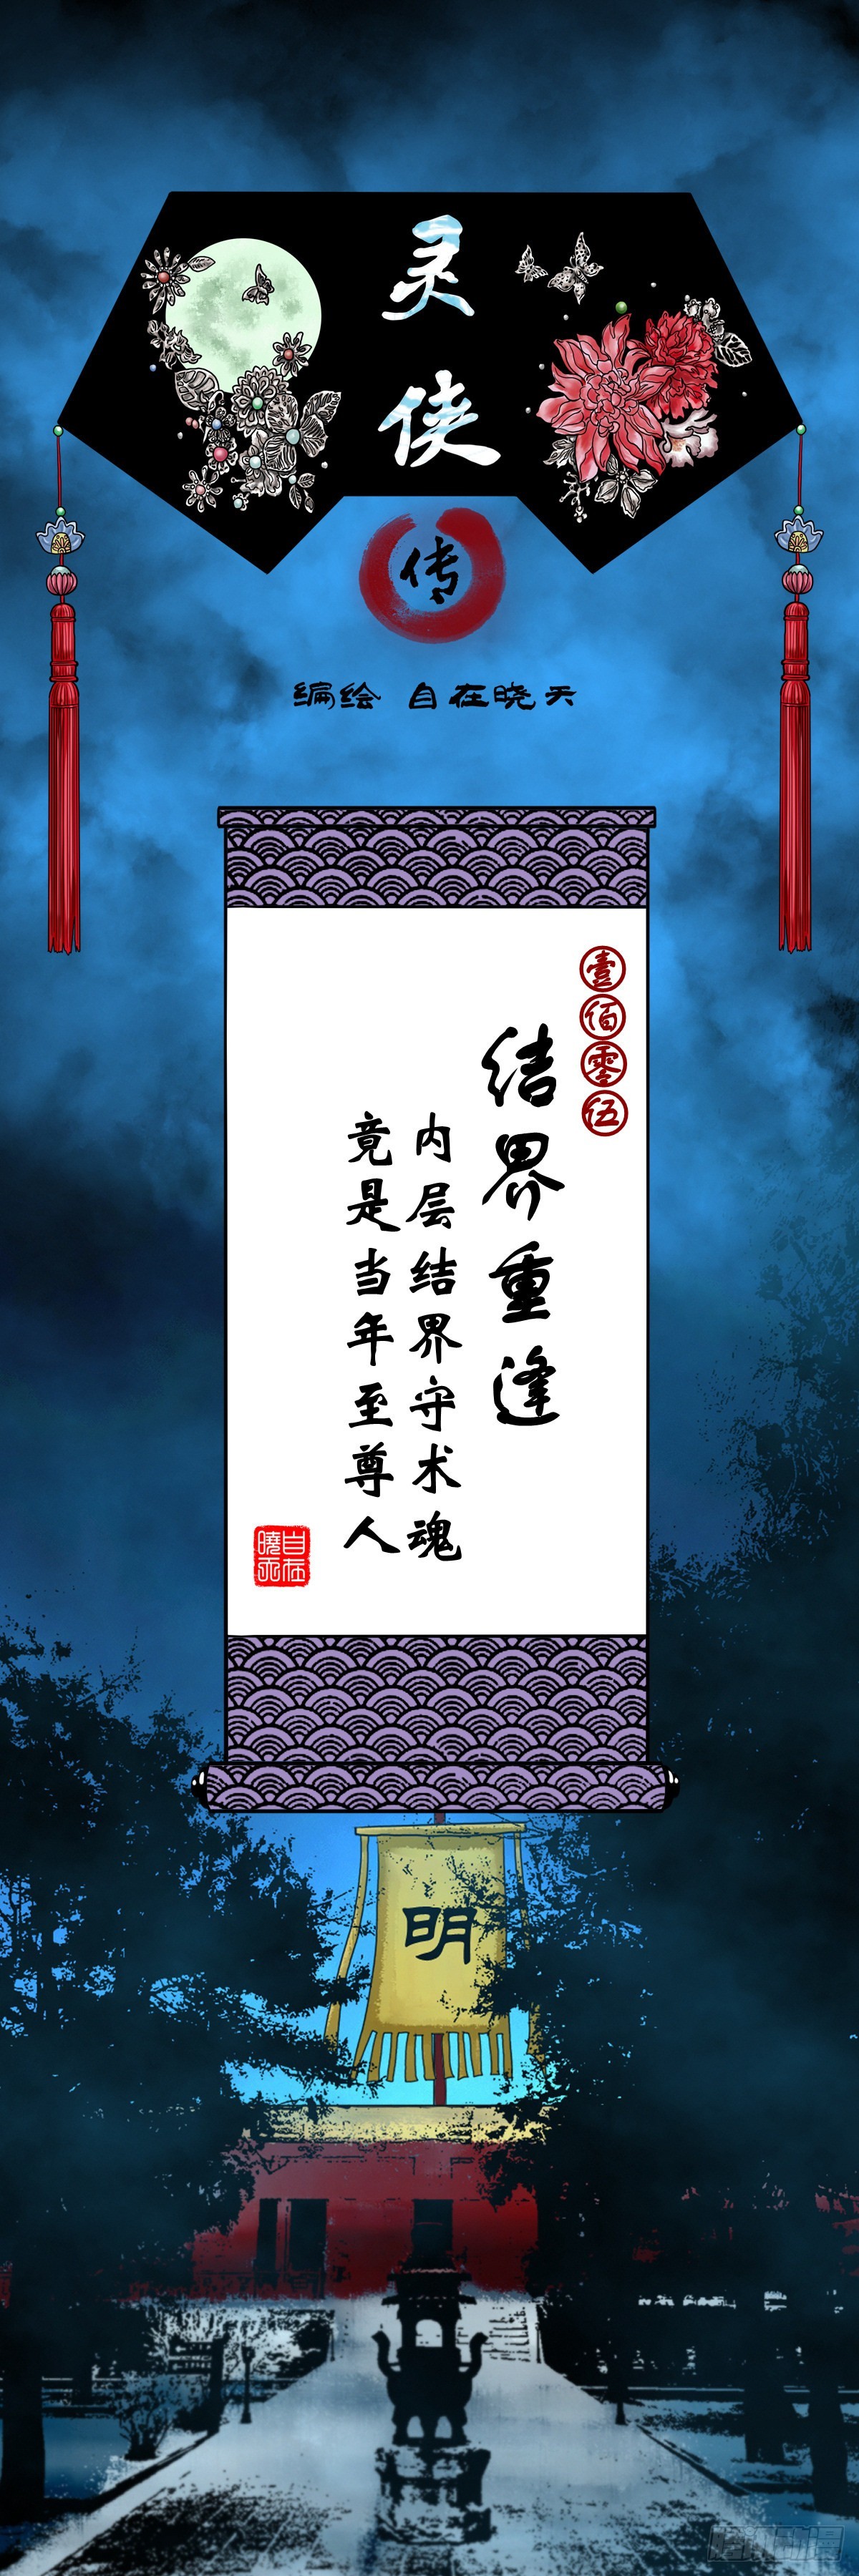 灵
侠
传
编绘 自在晓天
壹佰零伍
结界重逢
内层结界守术魂
竟是当年至尊人
自在
曉天
明
腾讯动漫